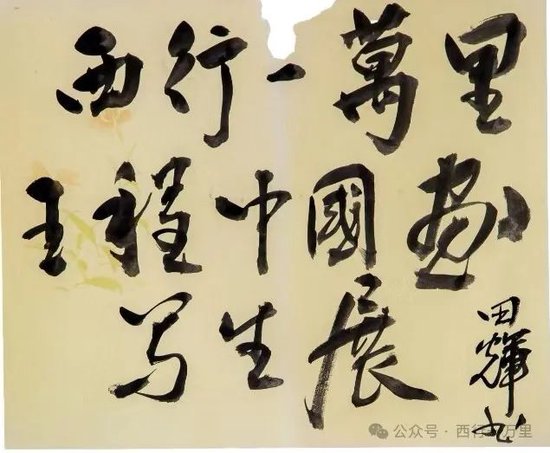 西行一萬里
王程中國画
写生展
田輝书
公众号·西行一万里